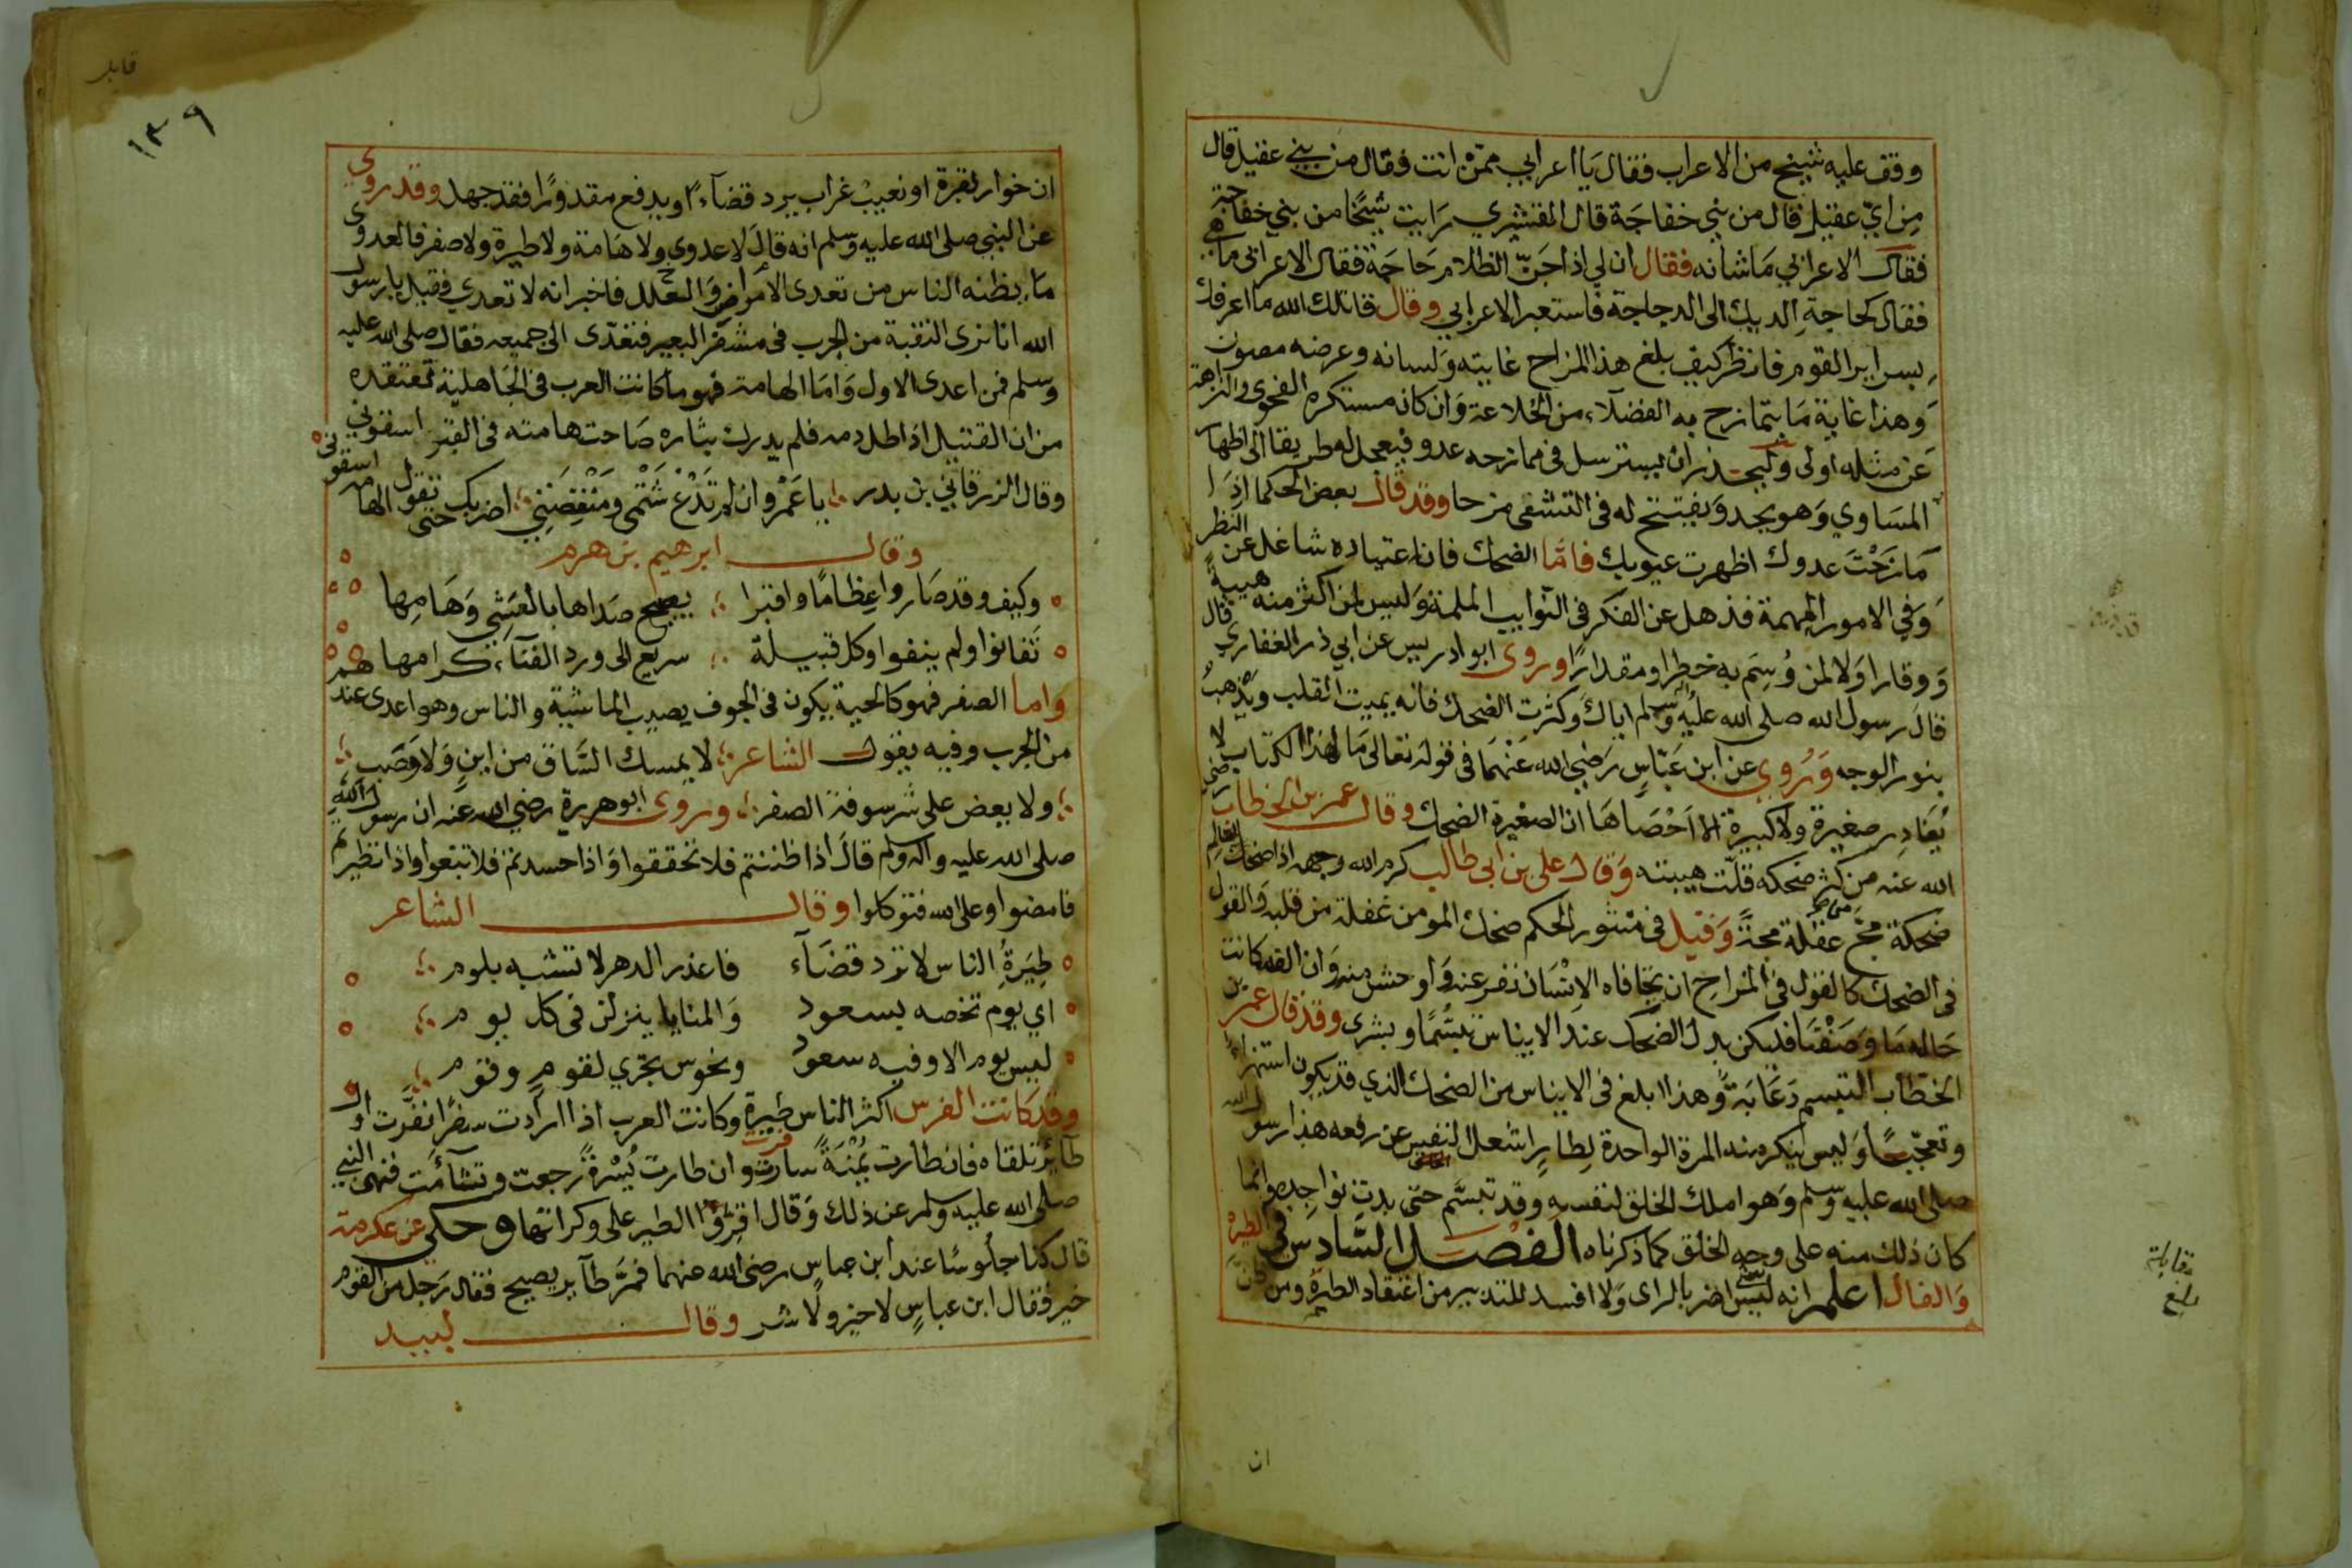 وقف عليه شيخ من الاعراب فقال يا اعرابي ممن انت فقال من بني عقيل قال
من اي عقيل قال من بني خفاجة قال القشيري رايت شيخا من بني خفاجة
فقال الاعرابي ما شانه فقال ان لي اذا جن الظلام حاجة فقال الاعرابي ما هي
فقال كحاجة الديك الى الدجاجة فاستعبر الاعرابي وقال قاتلك الله ما اعرفك
بسراير القوم فانظر كيف بلغ هذا المزاح غايته ولسانه وعرضه مصون
وهذا غاية ما يتمازح به الفضلاء من الخلاعة وان كان مستكره الفحوى والنزاهة
عن مثله اولى وليحذر ان يسترسل في ممازحه عدو فيجعل له طريقا الى اظهار
المساوي وهو يجد ويفتتح له في التشفي مزحا وقد قال بعض الحكما اذا
مازحت عدوك اظهرت عيوبك فاما الضحك فان اعتياده شاغل عن النظر
وفي الامور المهمة فذهل عن الفكر في النوايب الملمة وليس لمن اكثر منه هيبة
ووقارا ولا لمن وسم به خطرا ومقدارا وروى ابو ادريس عن ابي ذر الغفاري قال
قال رسول الله صلى الله عليه وسلم اياك وكثرت الضحك فانه يميت القلب ويذهب
بنور الوجه وروي عن ابن عباس رضي الله عنهما في قوله تعالى ما لهذا الكتاب لا
يغادر صغيرة ولا كبيرة الا احصاها ان الصغيرة الضحك وقال عمر بن الخطاب رضي
الله عنه من كثر ضحكه قلت هيبته وقال علي بن ابي طالب كرم الله وجهه اذا ضحك العالم
ضحكة مج من عقله مجة وقيل في منثور الحكم ضحك المومن غفلة من قلبه والقول
في الضحك كالقول في المزاح ان تجافاه الانسان نفر عنه واوحش منه وان الفه كانت
حاله ما وصفنا فليكن بدل الضحك عند الايناس تبسما وبشرى وقد قال عمر بن
الخطاب التبسم دعابة وهذا ابلغ في الايناس من الضحك الذي قد يكون استهزاء
وتعجبا وليس ينكر منه المرة الواحدة لطاير اشعل النفس عن رفعه هذا رسول الله
صلى الله عليه وسلم وهو املك الخلق لنفسه وقد تبسم حتى بدت نواجده وانما
كان ذلك منه على وجه الخلق كما ذكرناه الفصل السادس في الطيرة
والفال اعلم انه ليس اضر بالراى ولا افسد للتدبير من اعتقاد الطيرة ومن ظن
ان
مقابلة
بلغ
قابل
١٣٩
ان خوار بقرة او نعيب غراب يرد قضاء او يدفع مقدورا فقد جهل وقد روي
عن النبي صلى الله عليه وسلم انه قال لا عدوى ولا هامة ولا طيرة ولا صفر فالعدوى
ما يظنه الناس من تعدى الامراض والعلل فاخبر انه لا تعدي فقيل يا رسول
الله انا نرى النقبة من الجرب في مشفر البعير فتغدى الى جميعه فقال صلى الله عليه
وسلم فمن اعدى الاول واما الهامة فهو ما كانت العرب في الجاهلية تعتقده
من ان القتيل اذا طل دمه فلم يدرك بثاره صاحت هامته في القبر اسقوني
وقال الزرقاني بن بدر يا عمرو ان لم تدع شتمي ومنقضتي اضربك حتى تقول الهامه اسقوني
وقال ابرهيم بن هرم
وكيف وقد صاروا عظاما واقبرا يصيح صداها بالعشي وهامها
تفانوا ولم يبقوا وكل قبيلة سريع الى ورد الفناء كرامها هم
واما الصفر فهو كالحية يكون في الجوف يصيب الماشية والناس وهو اعدى عند
من الجرب وفيه يقول الشاعر لا يمسك الساق من اين ولا وصب
ولا يعض على شرسوفة الصفر وروى ابو هريرة رضي الله عنه ان رسول الله
صلى الله عليه واله وسلم قال اذا ظننتم فلا تحققوا واذا حسدتم فلا تبغوا واذا تطيرتم
فامضوا وعلى الله فتوكلوا وقال الشاعر
طيرة الناس لا ترد قضاء فاعذر الدهر لا تشبه بلوم
اي يوم تخصه بسعود والمنايا ينزلن في كل يوم
ليس يوم الا وفيه سعود ونحوس تجري لقوم وقوم
وقد كانت الفرس اكثر الناس طيرة وكانت العرب اذا ارادت سفرا نفرت اول
طائر تلقاه فان طارت يمنة سارت وان طارت يسرة رجعت وتشآمت فنهى النبي
صلى الله عليه وسلم عن ذلك وقال اقروا الطير على وكراتها وحكي عن عكرمة
قال كنا جلوسا عند ابن عباس رضي الله عنهما فمر طاير يصيح فقال رجل من القوم
خير فقال ابن عباس لا خير ولا شر وقال لبيد